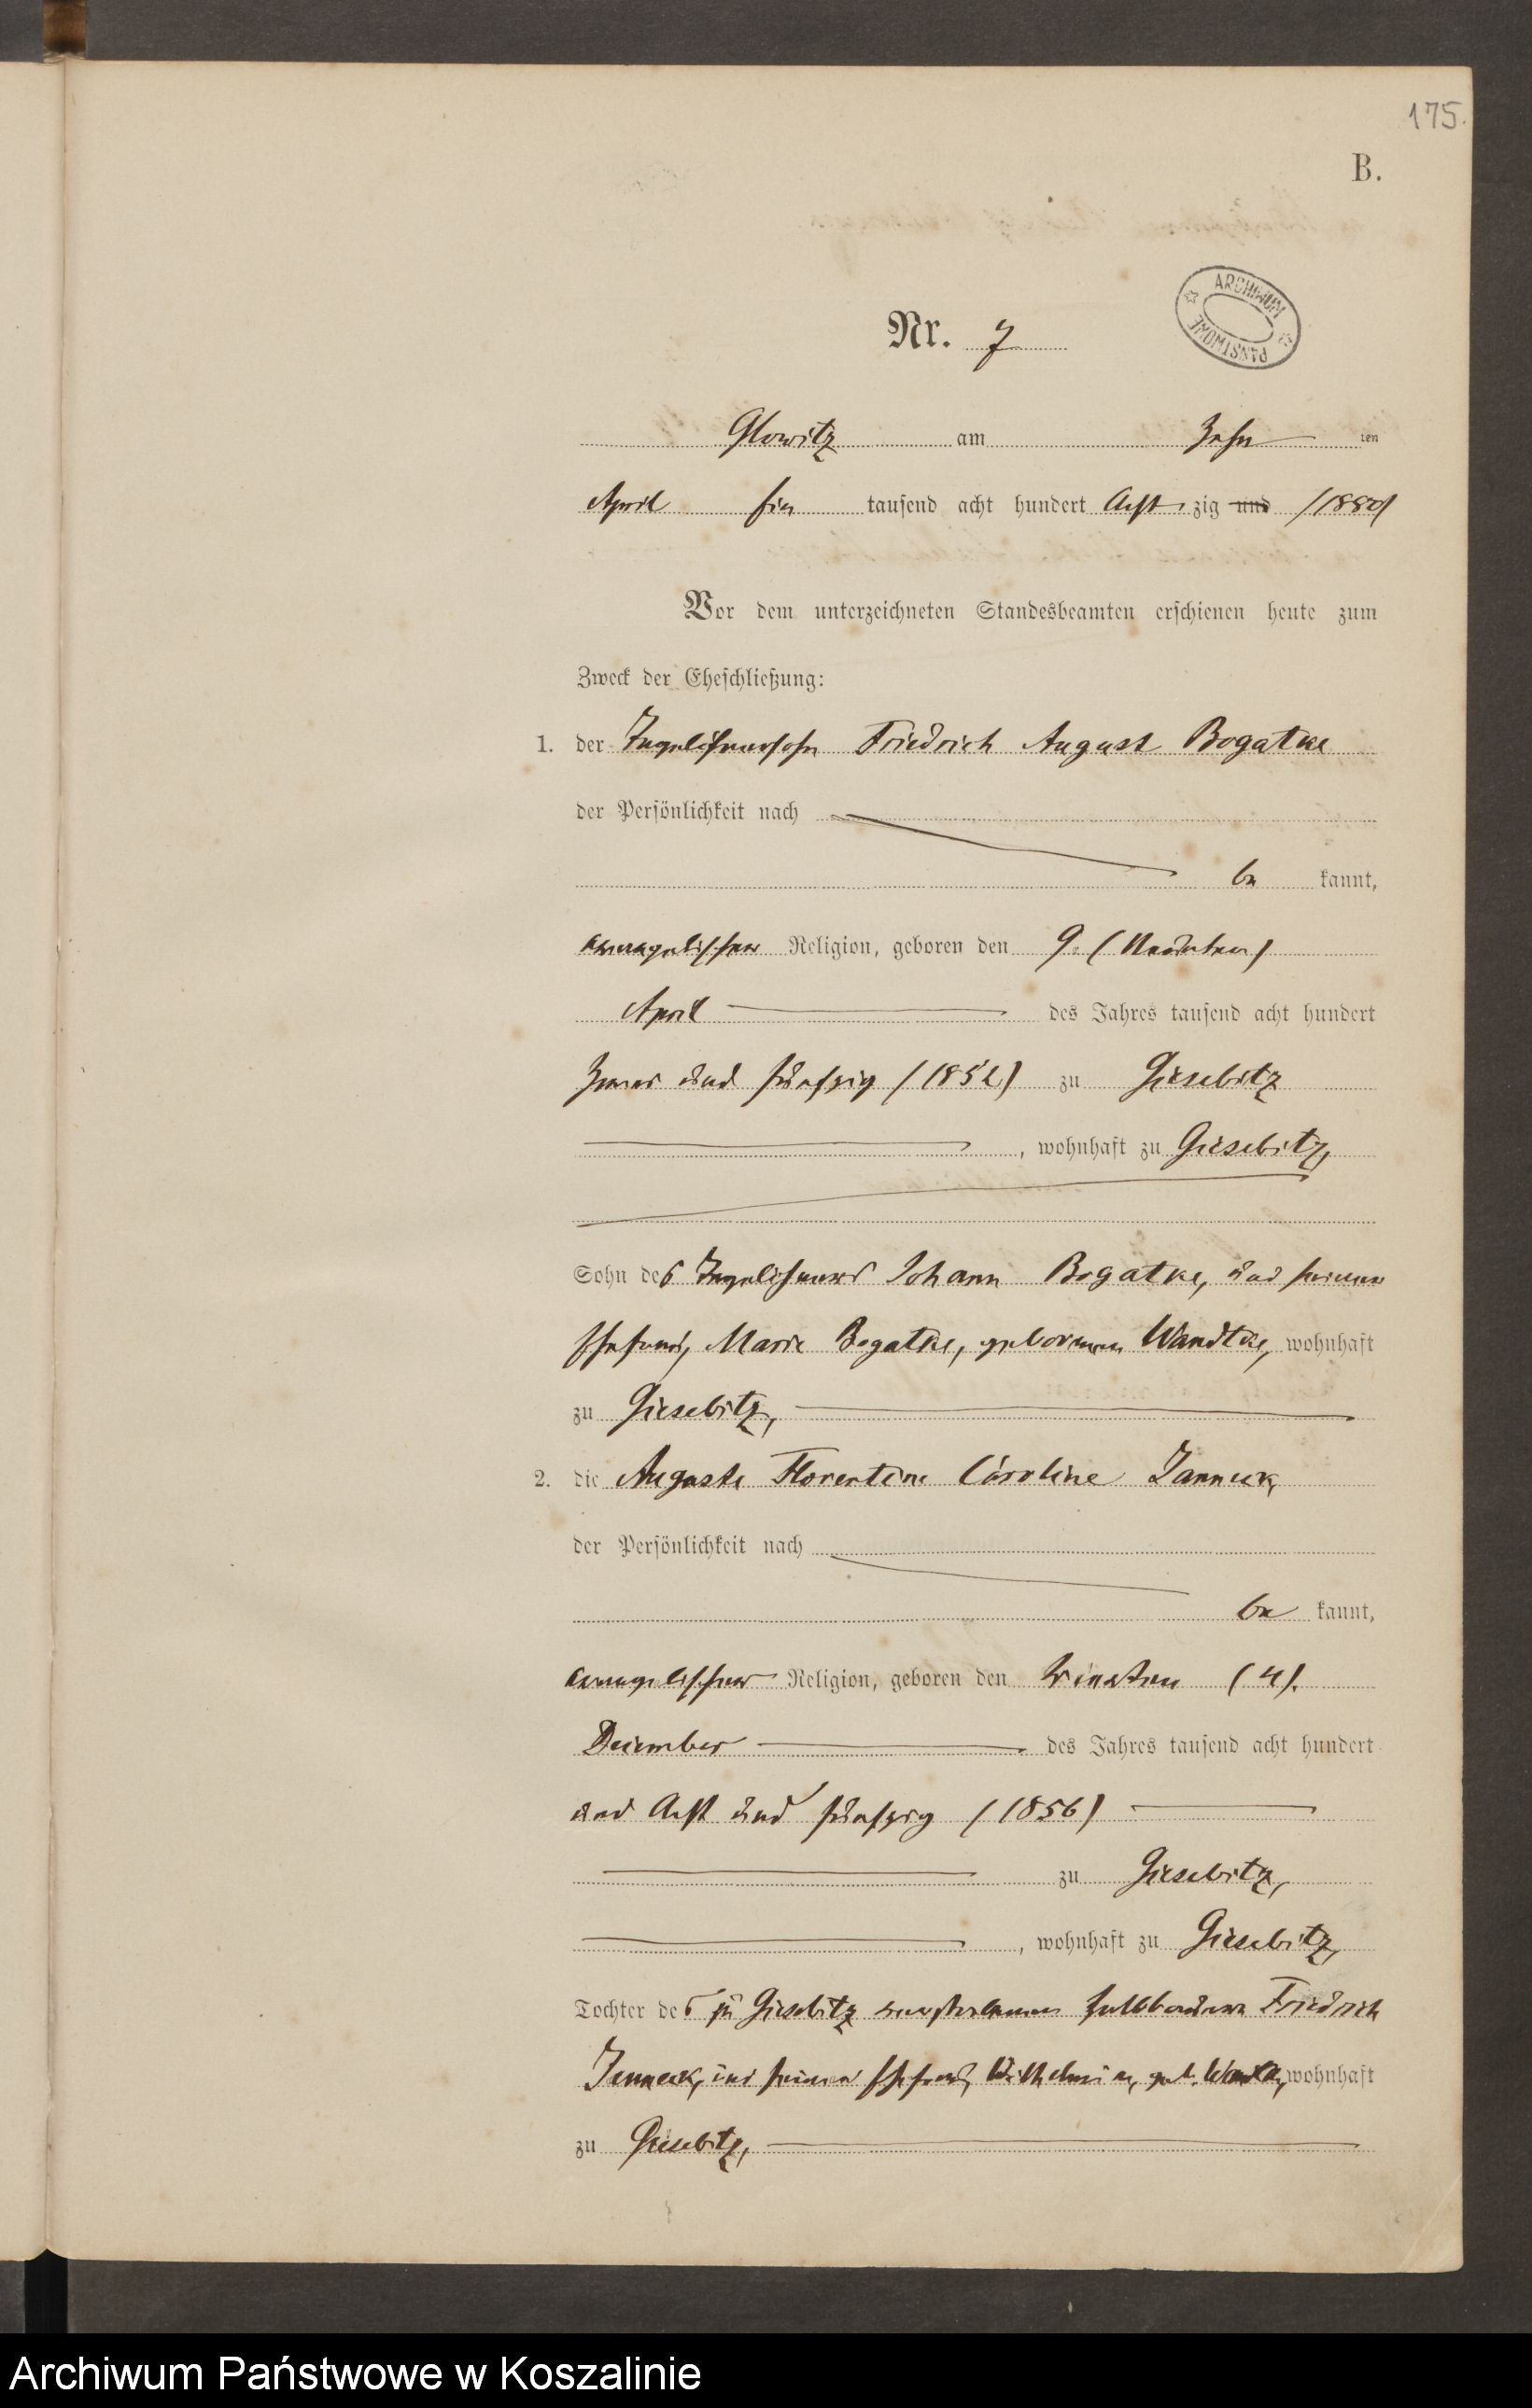 175.
B.
ARCHIWUM PAŃSTWOWE
Nr. 7
Glowitz am Zehn ten
April Ein tausend acht hundert Acht zig und /1880/
Vor dem unterzeichneten Standesbeamten erschienen heute zum
Zweck der Eheschließung:
1. der Friedrich August Bogatke
der Persönlichkeit nach
be kannt,
evangelischer Religion, geboren den 9. (Neunten)
April des Jahres tausend acht hundert
Zwei und fünfzig (1852) zu Giesebitz
, wohnhaft zu Giesebitz,
Sohn des Johann Bogatke, und seiner
Ehefrau, Marie Bogatke, geborenen Wandtke, wohnhaft
zu Giesebitz,
2. die Auguste Florentine Caroline Janneck,
der Persönlichkeit nach
be kannt,
evangelischer Religion, geboren den Vierten (4).
December des Jahres tausend acht hundert
und Acht und fünfzig (1856)
zu Giesebitz,
, wohnhaft zu Giesebitz,
Tochter des zu Giesebitz verstorbenen Halbbauern Friedrich
Janneck, und seiner Ehefrau, Wilhelmine, geb. wohnhaft
zu Giesebitz,
Archiwum Państwowe w Koszalinie